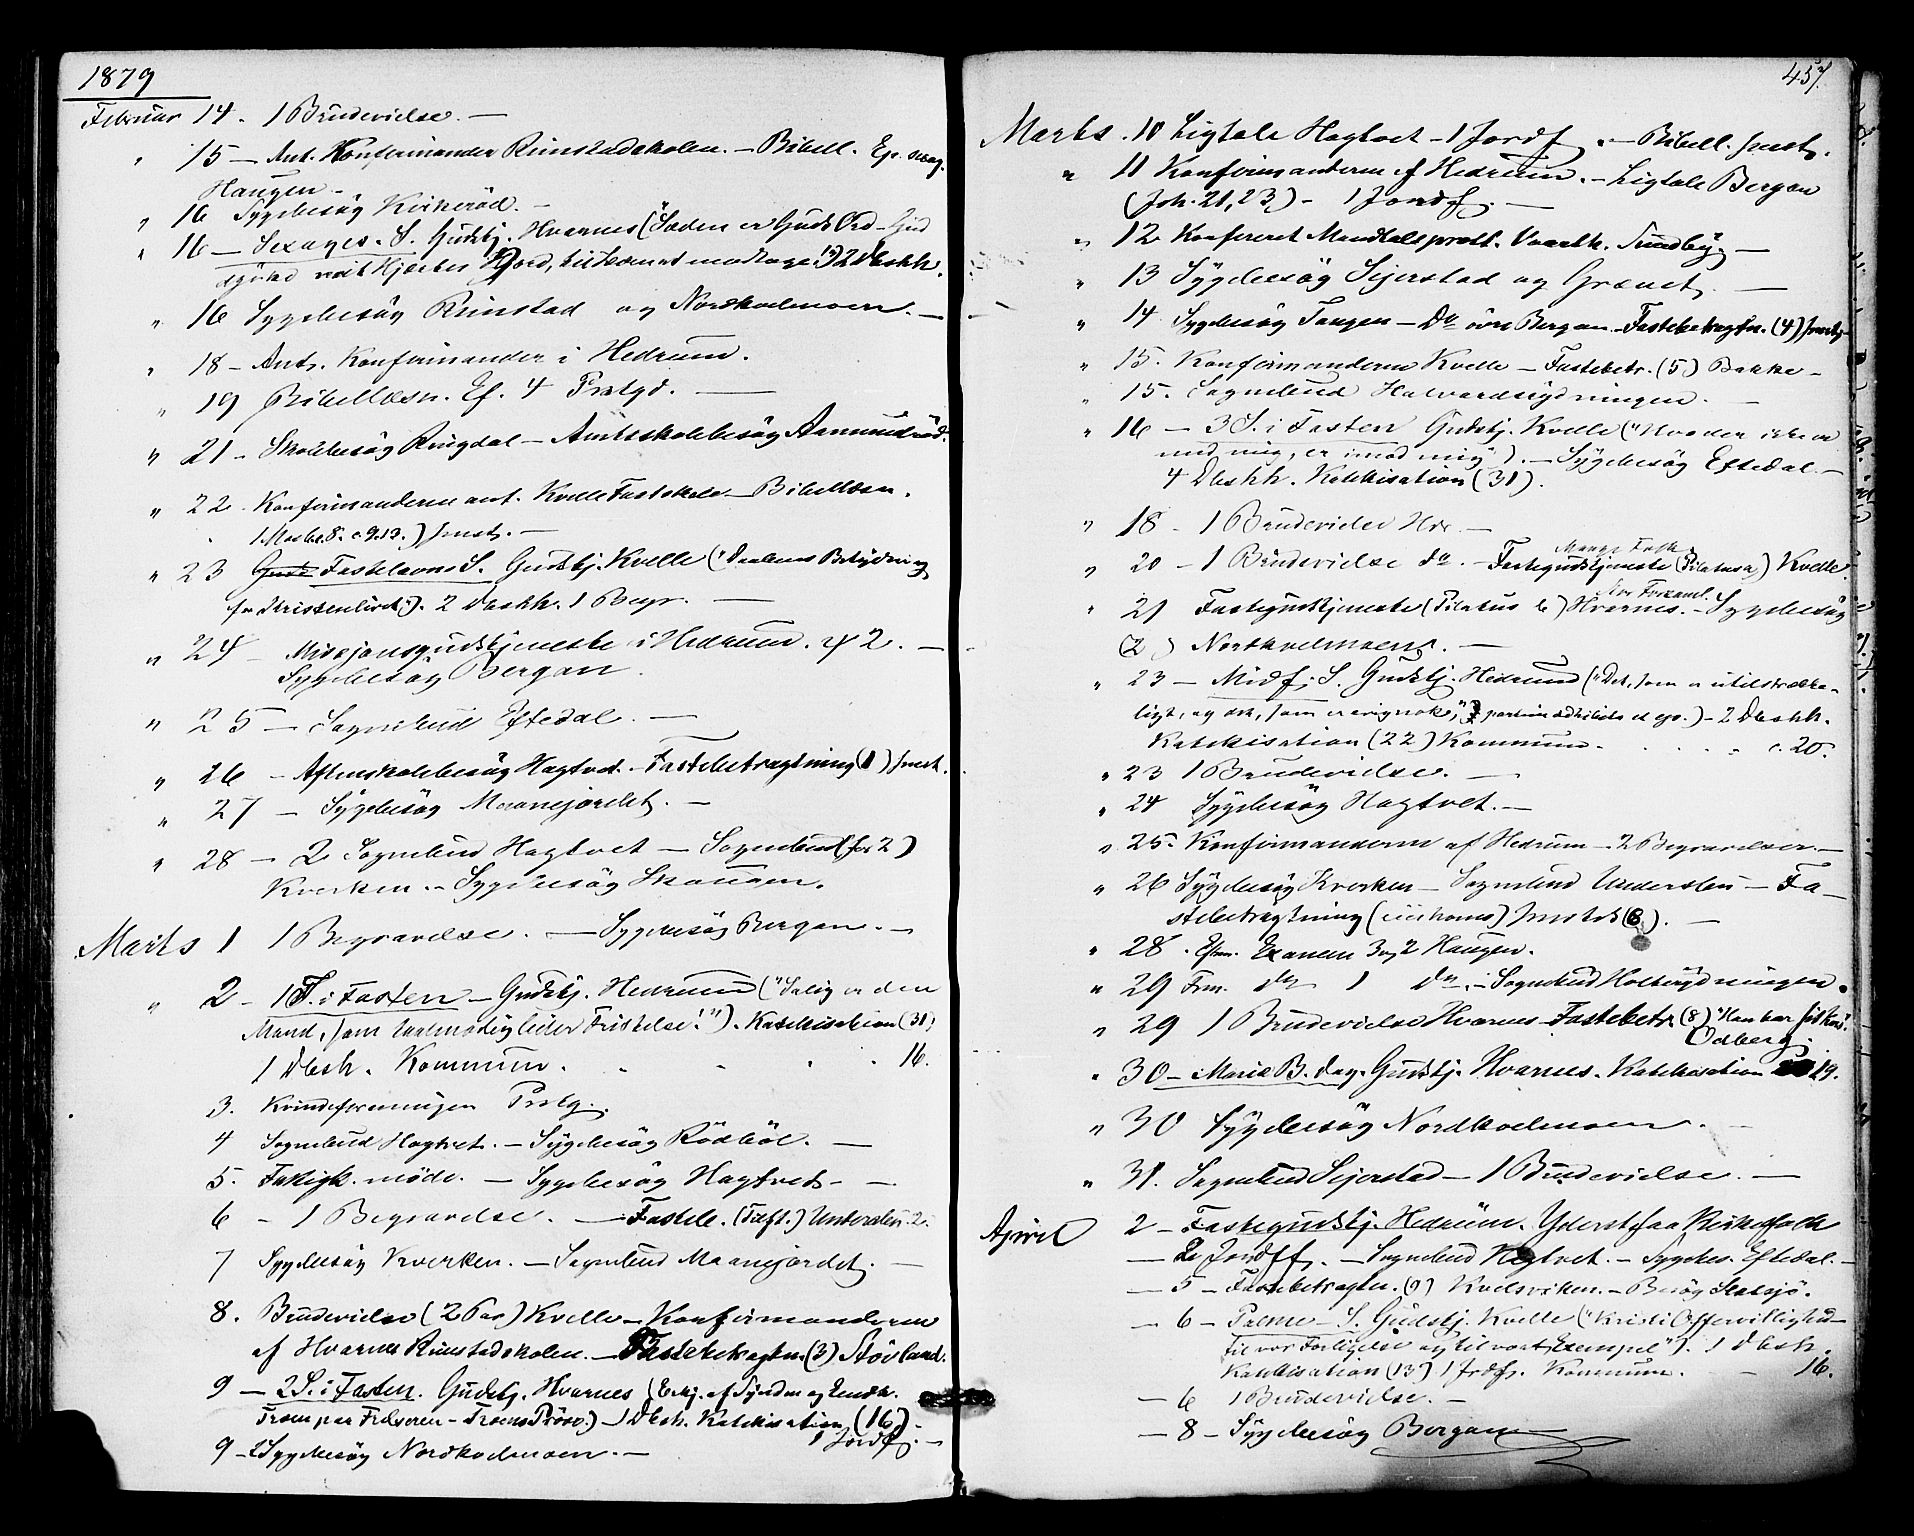 1879
Februar 14. 1 Brudevielse. —
" 15 — Ant. Konfirmander Rimstadskolen. — Bibell. Ep.
Haugen —
" 16 Sygebesøg Kirkerød. —
" 16 — Sexages. S. Gudstj. Hvarnes ("Sæden er Guds Ord — Gud
vort Hjertes Jord, til at modtage!") 2 Dbshh.
" 16 Sygebesøg Rimstad og Nordholmoen. —
" 18 — Ant. Konfirmander i Hedrum.
" 19 Bibellæsn. Ef. 4 Prstgd. —
" 21 — Skolebesøg Ringdal — Amtsskolebesøg Aamundrød.
" 22. Konfirmanderne ant. Kvelle Fastskole — Bibellæsn.
1 Moseb. 8. c. 9.10.) —
" 23 Fastelavns S. Gudstj. Kvelle ("Daabens Betydning
for Kristenlivet"). 2 Dbshh. 1 Begr. —
" 24 — Missjonsgudstjeneste i Hedrum. 2. —
Sygebesøg Bergan.
" 25 — Sognebud Eftedal. —
" 26 — Aftenskolebesøg Hagtvet. — Fastebetragtning (1)
" 27 — Sygebesøg Maanejordet. —
" 28 — 2 Sognebud Hagtvet — Sognebud (for 2)
Kverken. — Sygebesøg Skaugen.
Marts 1 1 Begravelse. — Sygebesøg Bergan. —
" 2 — 1 S. i Fasten — Gudstj. Hedrum ("Salig er den
Mand, som taalmodig lider Fristelse!"). Katekisation (31)
1 Dbsh. Kommun. . . . 16.
3. Kvindeforeningen Prstg.
4 Sognebud Hagtvet. — Sygebesøg Rødbøl. —
5. Fattigk. møde. — Sygebesøg Hagtvet. —
6 — 1 Begravelse. — Fasteb. Undersbu. 2.
7 Sygebesøg Kverken. — Sognebud Maanejordet. —
8. Brudevielse (2 Par) Kvelle — Konfirmanderne
af Hvarnes Rimstadskolen. — Fastebetragtn. (3) Støvland.
9 — 2 S. i Fasten. Gudstj. Hvarnes (Erkj. af Synden og
Troen paa Frelseren — Troens Prøve) — 1 Dbsh. Katekisation (16). —
1 Jordf. —
9 — 2 Sygebesøg Nordholmoen. —
457.
Marts. 10 Ligtale Hagtvet — 1 Jordf. — Bibell.
" 11 Konfirmanderne af Hedrum. — Ligtale Bergan
(Joh. 21, 23) — 1 Jordf. —
" 12 Konfereret Mandtalsprot. Sundby. —
" 13 Sygebesøg Sejerstad og Grænet. —
" 14 Sygebesøg Tangen — Do øvre Bergan. — Fastebetragtn. (4)
" 15. Konfirmanderne Kvelle — Fastebetr. (5) Bakke —
" 15. Sognebud Halvardsrydningen. —
" 16 — 3 S. i Fasten Gudstj. Kvelle ("Hvo der ikke er
med mig, er imod mig"). — Sygebesøg Eftedal. —
4 Dbshh. Katekisation (31).
" 18 — 1 Brudevielse Hvr. —
Mange Folk
" 20 — 1 Brudevielse do. — Fastegudstjeneste (Pilatus a) Kvelle.
Stor Forsaml.
" 21 Fastegudstjeneste (Pilatus b) Hvarnes. — Sygebesøg
(2) Nordholmoen. —
" 23 — Midf. S. Gudstj. Hedrum ("Det, som er utilstrække-
ligt, og det, som er nok", ) — 2 Dbshh.
Katekisation (22) Kommun. . . . c. 20.
" 23 1 Brudevielse. —
" 24 Sygebesøg Hagtvet. —
" 25. Konfirmanderne af Hedrum — 2 Begravelser. —
" 26 Sygebesøg Kverken — Sognebud Undersbu — Fa-
stebetragtning (ecce homo) (6). —
" 28. Efm. Examen 3 og 2 Haugen.
" 29 Frm. do 1 do. — Sognebud Holtrydningen.
" 29 1 Brudevielse Hvarnes — Fastebetr. (8) "Han bar sit Kors"
Odberg.
" 30 — Mariæ B. dag. Gudstj. Hvarnes. Katekisation 19.
" 30 Sygebesøg Nordholmoen. —
" 31. Sognebud Sejerstad — 1 Brudevielse. —
April 2 — Fastegudstj. Hedrum. Yderst faa Kirkefolk
— 2 Jordff. — Sognebud Hagtvet. — Sygebes. Eftedal. —
— 5 — Fastebetragtn. (9) Kvelsviken. — Besøg Skatsjø.
— 6 — Palme-S. Gudstj. Kvelle ("Kristi Offervillighed
til vor Forligelse og til vort Exempel"). 1 Dbsh.
Katekisation (13) 1 Jordf. Kommun. — 16.
— 6 1 Brudevielse. —
— 8 — Sygebesøg Bergan —